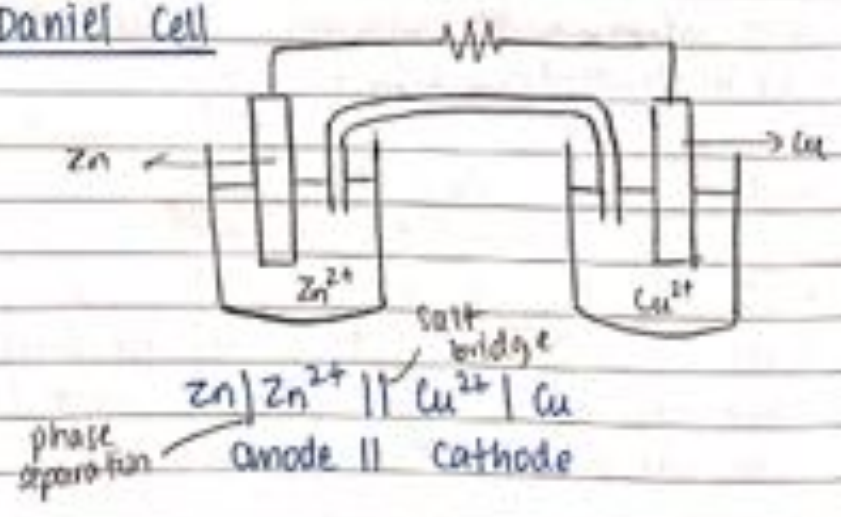 Daniel Cell
Zn
Cu
Zn²⁺
Cu²⁺
salt
bridge
Zn|Zn²⁺ || Cu²⁺ | Cu
phase
separation
anode || cathode